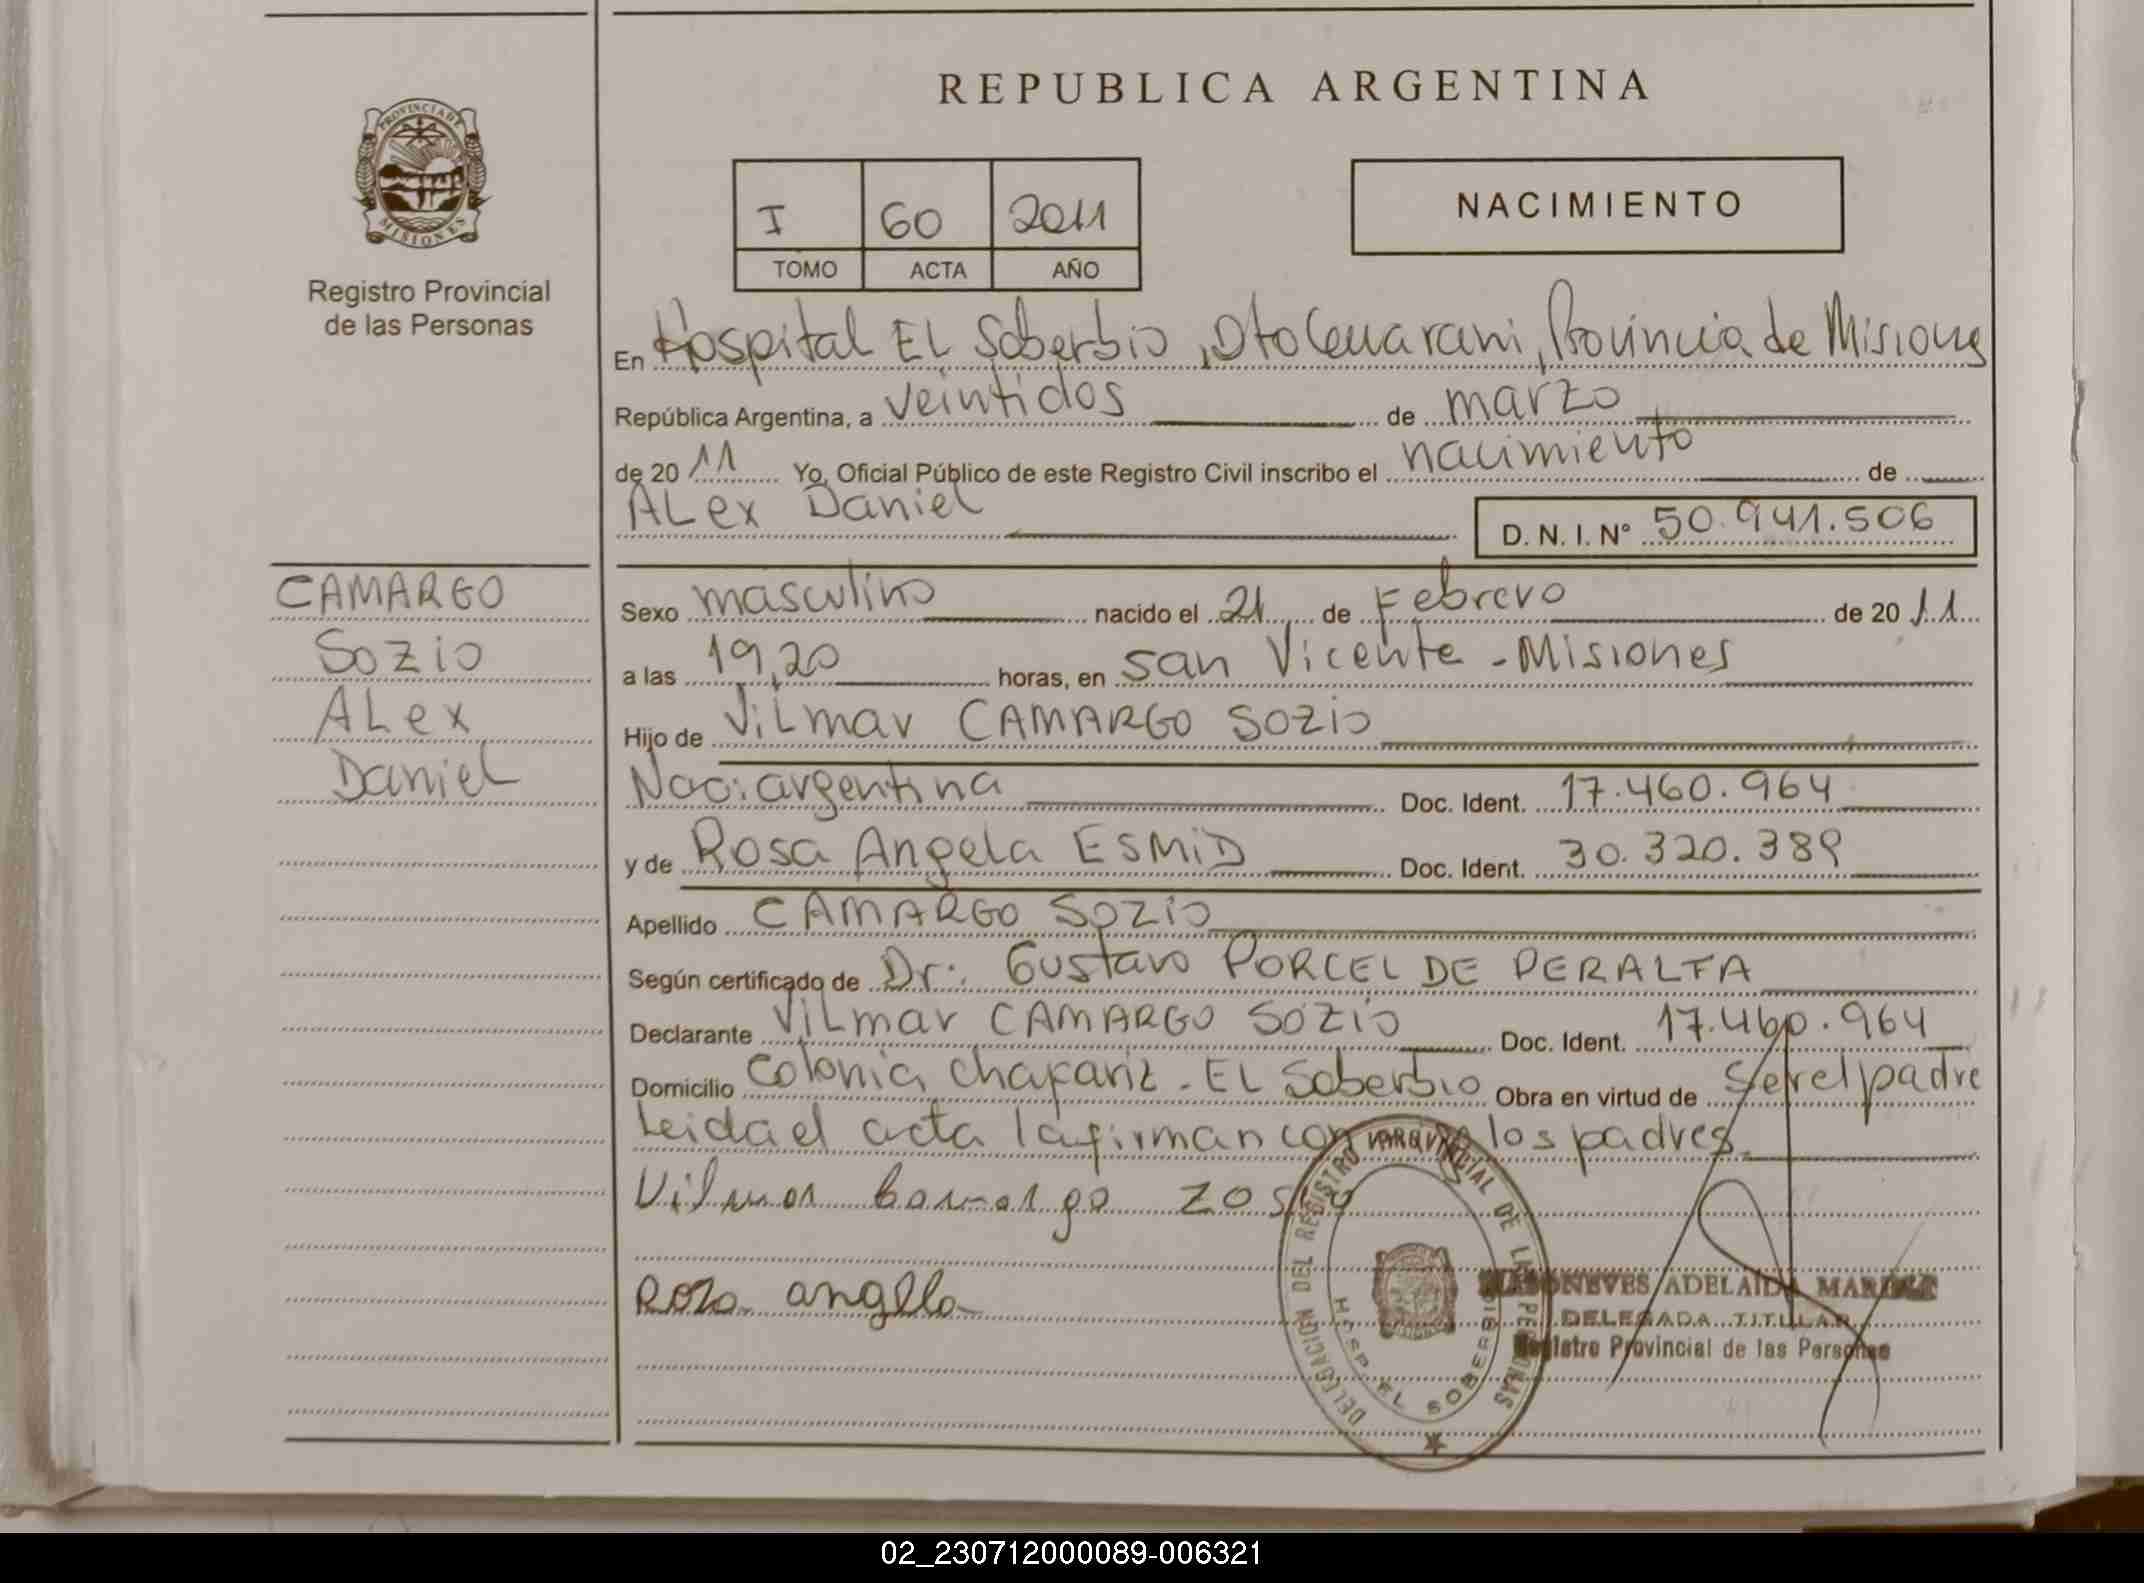 REPUBLICA ARGENTINA
PROVINCIA DE
MISIONES
Registro Provincial
de las Personas
I 60 2011
TOMO ACTA AÑO
NACIMIENTO
En Hospital EL Soberbio, Dto Guarani, Provincia de Misiones
República Argentina, a veintidos de marzo
de 2011 Yo, Oficial Público de este Registro Civil inscribo el nacimiento de
ALex Daniel
D. N. I. Nº 50.941.506
CAMARGO
Sozio
ALex
Daniel
Sexo masculino nacido el 21 de Febrero de 2011
a las 19,20 horas, en San Vicente - Misiones
Hijo de Vilmar CAMARGO SOZIO
Nac: argentina Doc. Ident. 17.460.964
y de Rosa Angela ESMID Doc. Ident. 30.320.389
Apellido CAMARGO SOZIO
Según certificado de Dr: Gustavo PORCEL DE PERALTA
Declarante Vilmar CAMARGO SOZIO Doc. Ident. 17.460.964
Domicilio Colonia chafariz - EL Soberbio Obra en virtud de ser el padre
Leida el acta la firman con los padres
Vilmar Camargo zosio
Rosa angela
DELEGACION DEL REGISTRO PROVINCIAL DE LAS PERSONAS
HOSP. EL SOBERBIO
ADELAIDA
DELEGADA TITULAR
Registro Provincial de las Personas
02_230712000089-006321